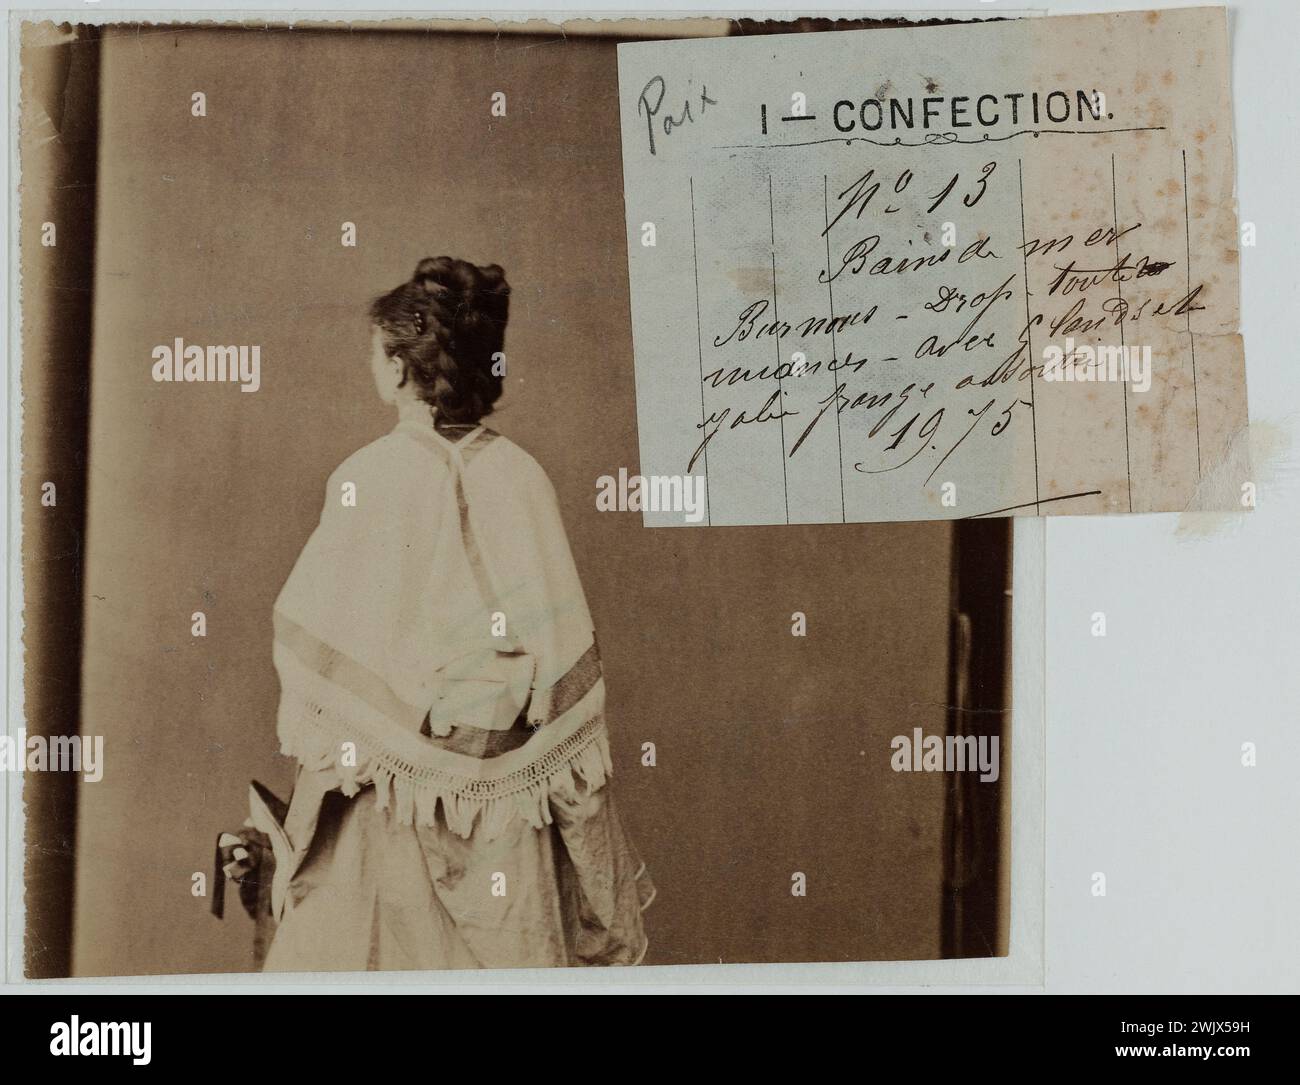 Paix
I — CONFECTION.
No 13
Bains de mer
Burnous - Drap - toutes
nuances - avec glands et
jolie frange assortie
19.75
alamy
alamy
alamy
alamy
alamy
Image ID: 2WJX59H
www.alamy.com